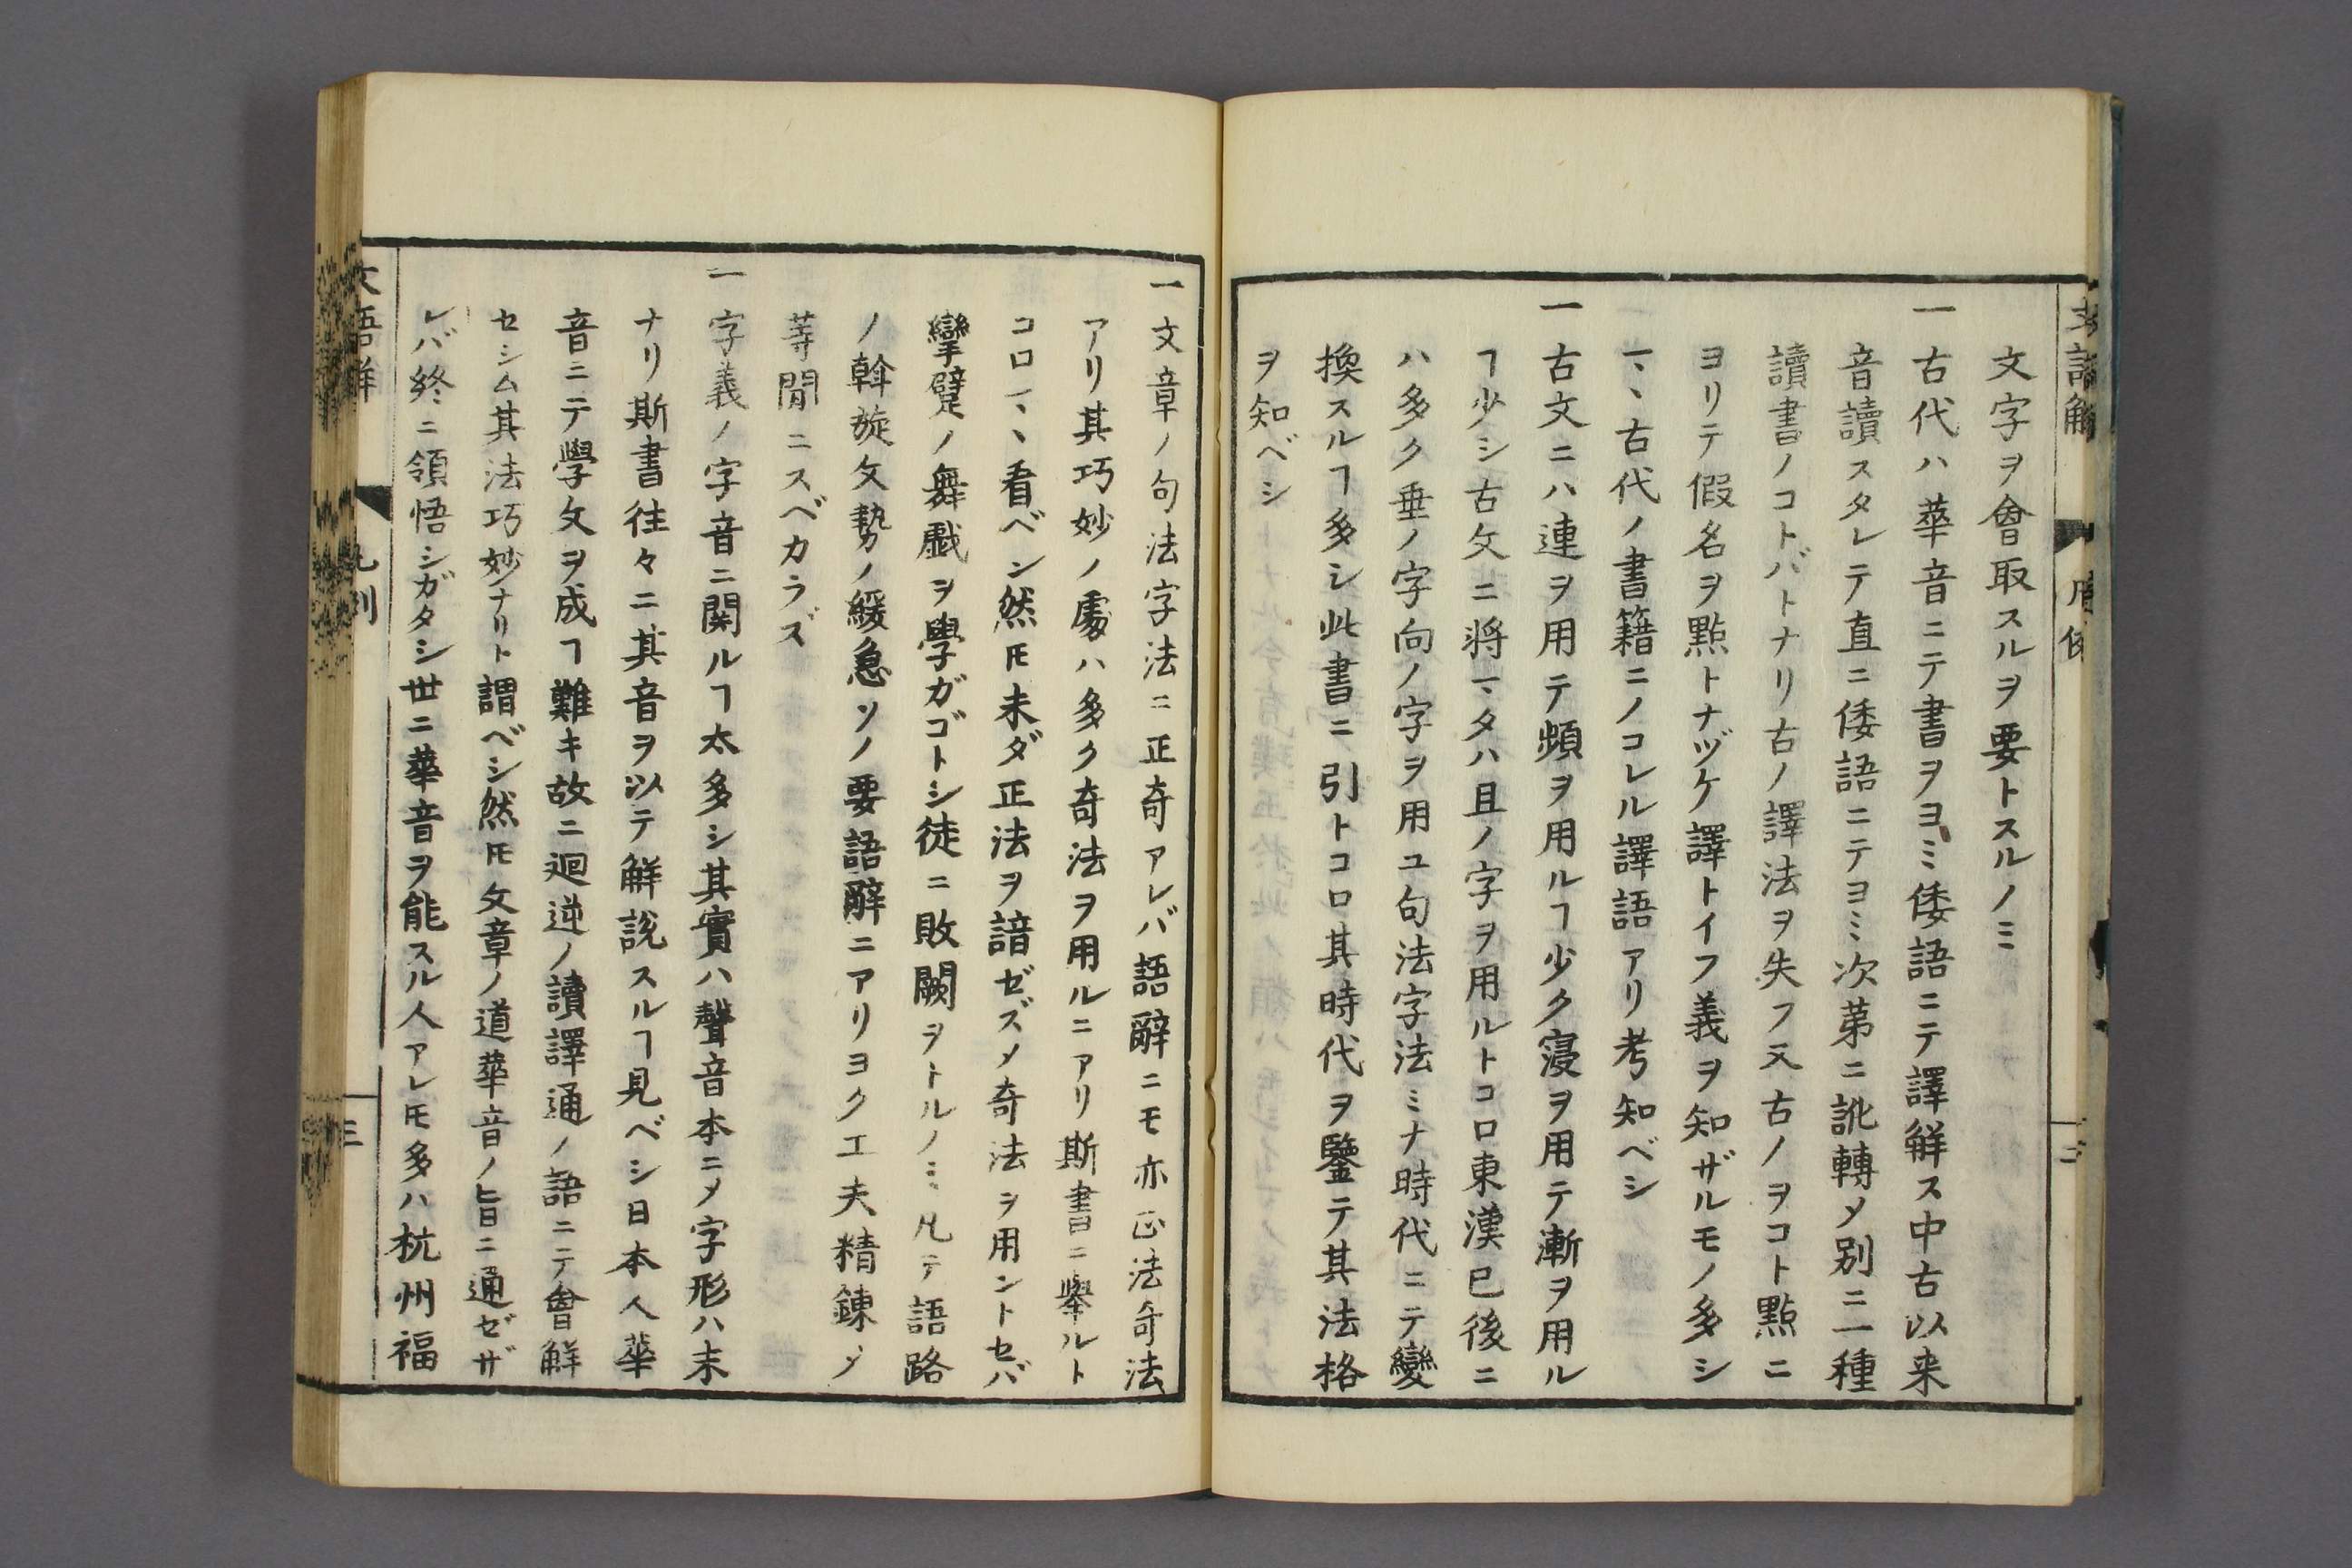 文字ヲ會取スルヲ要トスルノミ
一古代ハ華音ニテ書ヲヨミ倭語ニテ譯解ス中古以来
音讀スタレテ直ニ倭語ニテヨミ次第ニ訛轉〆別ニ一種
讀書ノコトバトナリ古ノ譯法ヲ失フ又古ノヲコト點ニ
ヨリテ假名ヲ點トナヅケ譯トイフ義ヲ知ザルモノ多シ
マヽ古代ノ書籍ニノコレル譯語アリ考知ベシ
一古文ニハ連ヲ用テ頻ヲ用ルヿ少ク寖ヲ用テ漸ヲ用ル
ヿ少シ古文ニ将マタハ且ノ字ヲ用ルトコロ東漢已後ニ
ハ多ク垂ノ字向ノ字ヲ用ユ句法字法ミナ時代ニテ變
換スルヿ多シ此書ニ引トコロ其時代ヲ鑒テ其法格
ヲ知ベシ
一文章ノ句法字法ニ正奇アレバ語辭ニモ亦正法奇法
アリ其巧妙ノ處ハ多ク奇法ヲ用ルニアリ斯書ニ擧ルト
コロマヽ看ベシ然𪜈未ダ正法ヲ諳ゼズ〆奇法ヲ用ントセバ
攣躄ノ舞戲ヲ學ガゴトシ徒ニ敗闕ヲトルノミ凡テ語路
ノ斡旋文勢ノ緩急ソノ要語辭ニアリヨク工夫精錬〆
等閒ニスベカラズ
一字義ノ字音ニ関ルヿ太多シ其實ハ聲音本ニ〆字形ハ末
ナリ斯書往々ニ其音ヲ以テ解説スルヿ見ベシ日本人華
音ニテ學文ヲ成ヿ難キ故ニ迴逆ノ讀譯通ノ語ニテ會解
セシム其法巧妙ナリト謂ベシ然𪜈文章ノ道華音ノ旨ニ通ゼザ
レバ終ニ領悟シガタシ世ニ華音ヲ能スル人アレ𪜈多ハ杭州福
三